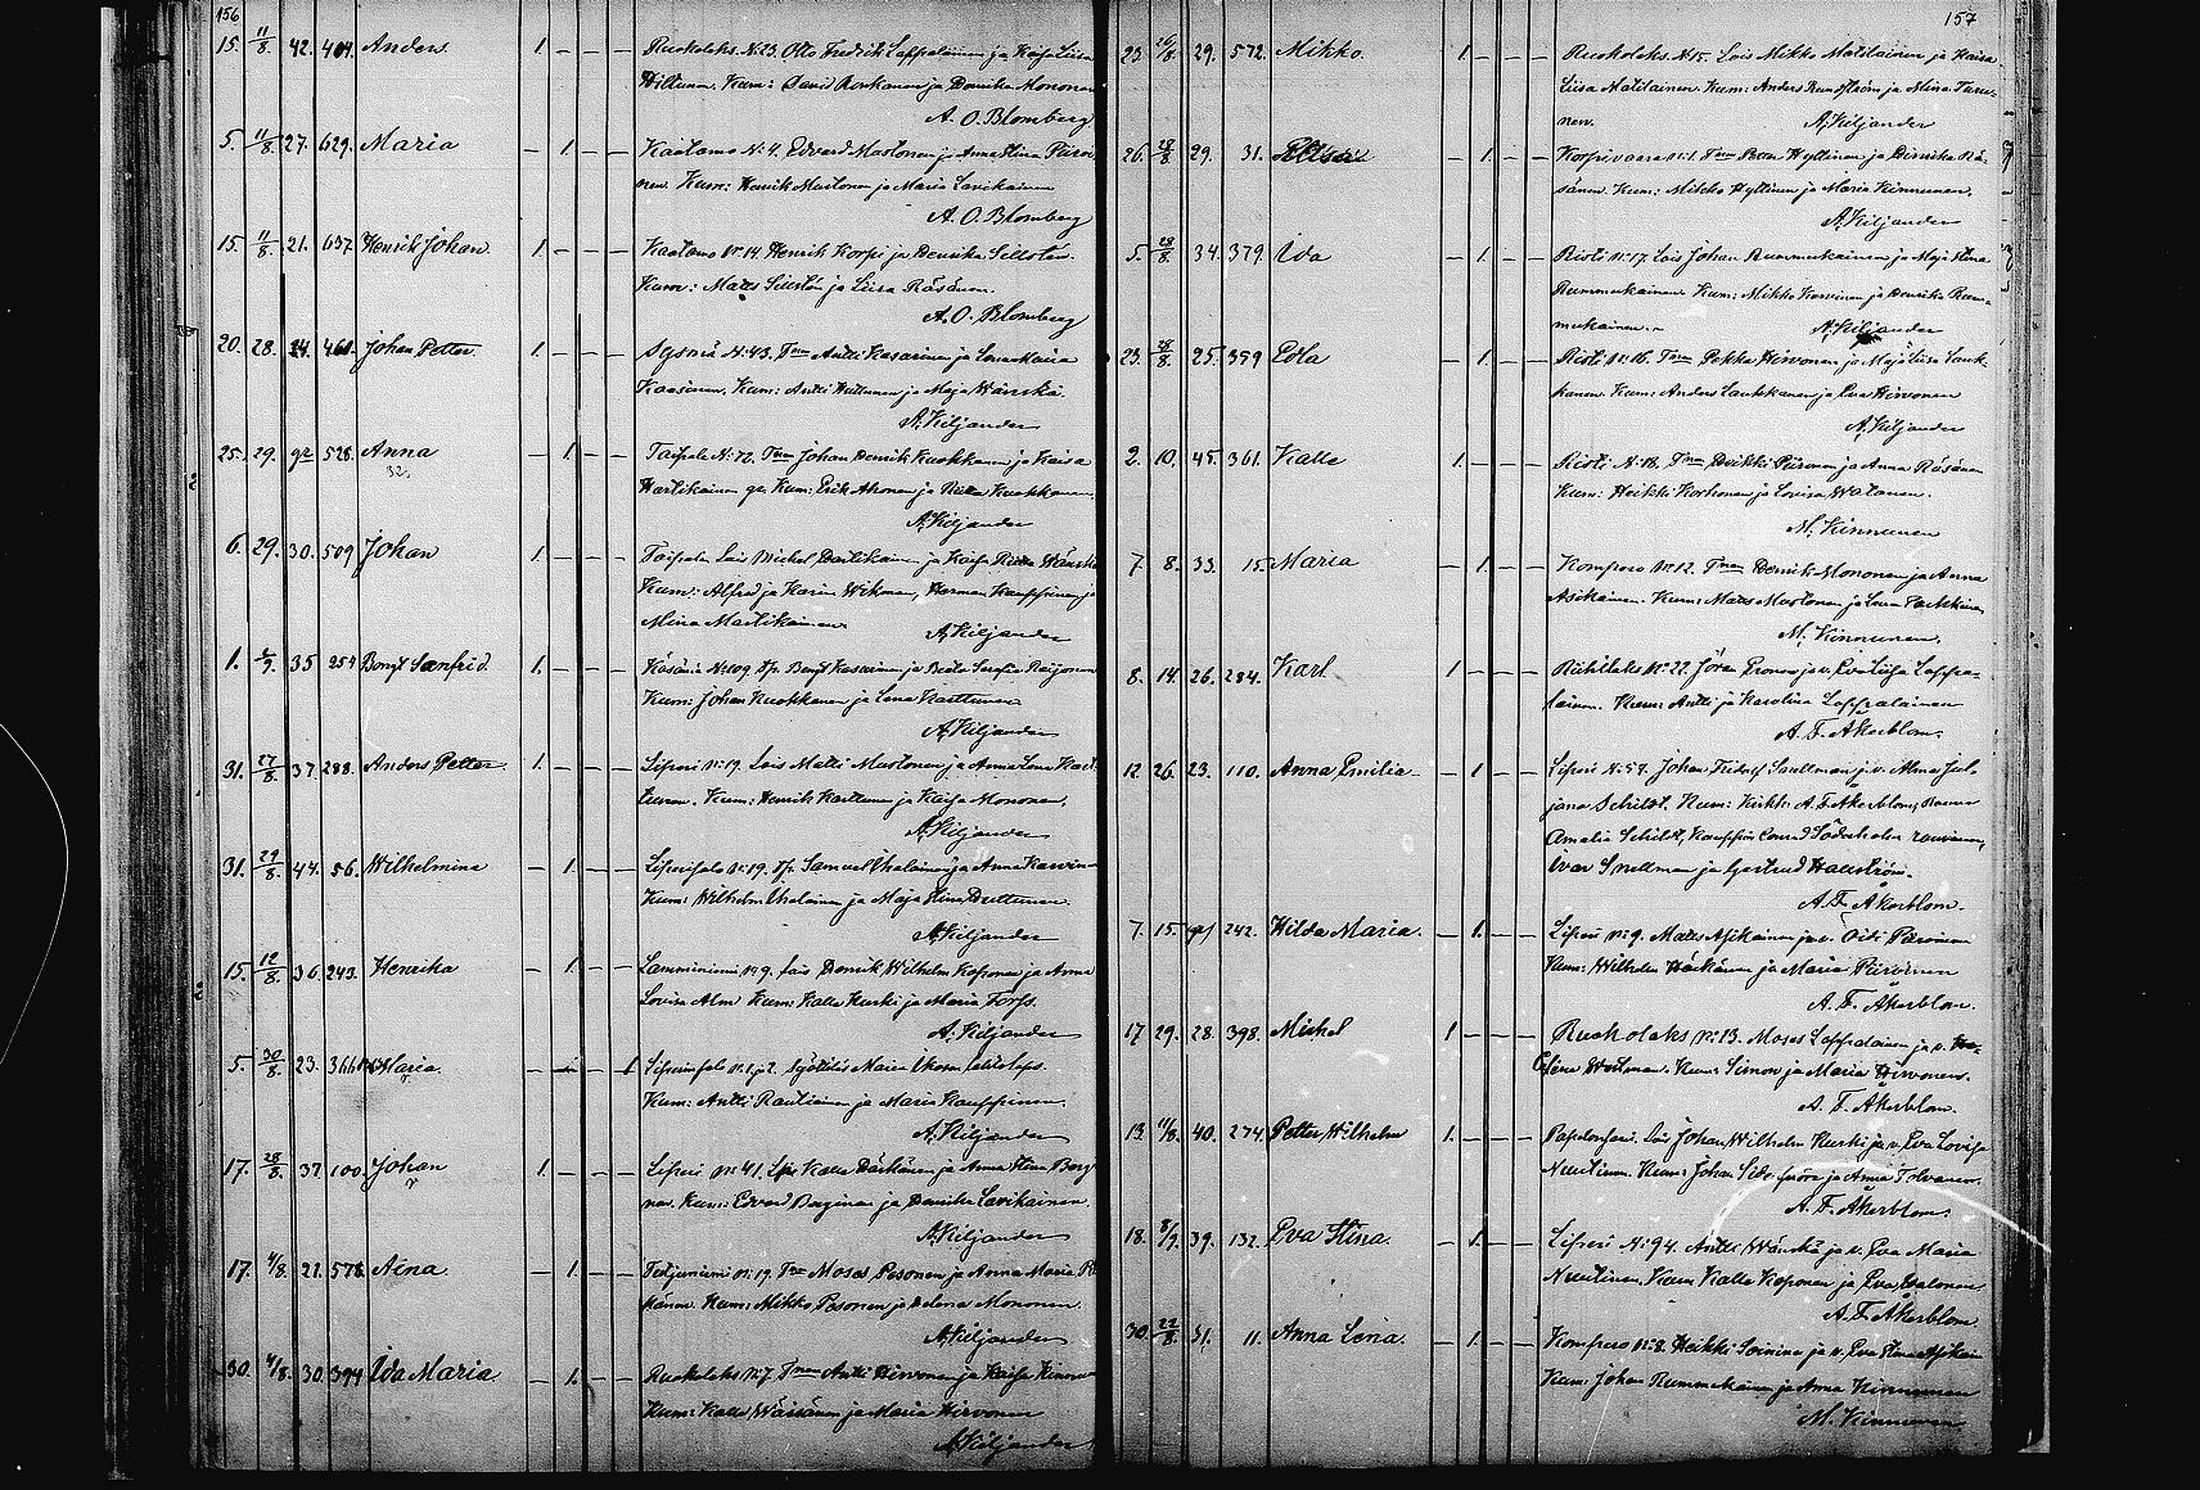 156
15. 11/8. 42. 404. Anders. 1. — — — Ruokolaks. N:23. Otto Fredrik Lappalainen ja Kaisa Liisa
Hiltunen. Kum: David Ronkanen ja Henrika Mononen
A. O. Blomberg
5. 11/8. 27. 629. Maria — 1. — — Kaatamo N:4. Edvard Mustonen ja Anna Stina Piiroi
nen. Kum: Henrik Mustonen ja Maria Lavikainen
A. O. Blomberg
15. 11/8. 21. 637. Henrik Johan. 1. — — — Kaatamo N:14. Henrik Korpi ja Henrika Sillstén.
Kum: Matts Sillstén ja Liisa Räsänen.
A. O. Blomberg
20. 28. 24. 461. Johan Petter. 1. — — — Sysmä N:43. Tmn Antti Kasarinen ja Lena Maria
Kaasinen. Kum: Antti Huttunen ja Maja Wänskä.
A. Kiljander
25. 29. gr 528. Anna — 1. — — Taipale N:72. Tmn Johan Henrik Kuokkanen ja Kaisa
32.
Hartikainen gr. Kum: Erik Ahonen ja Riitta Kuokkanen.
A. Kiljander
6. 29. 30. 509 Johan 1. — — — Taipale Lois Michel Martikainen ja Kaisa Riitta Wänskä
Kum: Alfred ja Karin Wikman, Herman Kauppinen ja
Mina Martikainen
A. Kiljander
1. 35 254 Bengt Sanfrid. 1. — — — Käsämä N:109. Bengt Kasurinen ja Beata Serafia Reijonen
Kum: Johan Kuokkanen ja Lena Karttunen
A. Kiljander
31. 27/8. 37. 288. Anders Petter. 1. — — — Liperi N:19. Lois Matti Mustonen ja Anna Lena Kart
tunen. Kum: Henrik Karttunen ja Kaisa Mononen.
A. Kiljander
31. 29/8. 44. 56. Wilhelmina — 1. — — Liperinsalo N:19. Samuel Ihalainen ja Anna Karvinen
Kum: Wilhelm Ihalainen ja Maja Stina Huttunen.
A. Kiljander
15. 12/8. 36. 243. Henrika — 1. — — Lamminniemi N:9. Lois Henrik Wilhelm Koponen ja Anna
Lovisa Alm Kum: Kalle Kurki ja Maria Forss.
A. Kiljander
5. 30/8. 23. 366 Maria. — — — 1 Liperinsalo N:1 ja 2. Maria Ikonen
Kum: Antti Rautiainen ja Maria Kauppinen.
A. Kiljander
17. 28/8. 37. 100. Johan 1. — — — Liperi N:41. Kalle Härkönen ja Anna Stina Borgi
nen. Kum: Edvard Borginen ja Henrika Lavikainen.
A. Kiljander
17. 4/8. 21. 578. Aina. — 1. — — Tutjuniemi N:19. Tmn Moses Pesonen ja Anna Maria
känen. Kum: Mikko Pesonen ja Helena Mononen.
A. Kiljander
30. 4/8. 30. 394 Ida Maria. — 1. — — Ruokolaks N:7. Tmn Antti Hirvonen ja Kaisa Kinnu
Kum: Kalle Wäisänen ja Maria Hirvonen
A. Kiljander
157
23. 26/8. 29. 572. Mikko. 1. — — — Ruokolaks. N:15. Lois Mikko Matilainen ja Kaisa
Liisa Matilainen. Kum: Anders Rundström ja Mina Turu-
nen. A. Kiljander
26. 28/8 29. 31. Elisa — 1. — — Korpivaara N:1. Tmn Petter Hyttinen ja Henrika Rä-
sänen. Kum: Mikko Hyttinen ja Maria Kinnunen.
A. Kiljander
5. 28/8. 34. 379. Ida — 1. — — Risti N:17. Lois Johan Rummukainen ja Maja Stina
Rummukainen. Kum: Mikko Karvinen ja Henrika Rum-
mukainen. A. Kiljander
23. 28/8. 25. 359 Edla — 1. — — Risti N:16. Tmn Pekka Hirvonen ja Maja Liisa Lauk-
kanen. Kum: Anders Laukkanen ja Eva Hirvonen
A. Kiljander
2. 10. 45. 361. Kalle 1. — — — Risti N:18. Tmn Heikki Piironen ja Anna Räsänen
Kum: Heikki Korhonen ja Lovisa Watanen.
M. Kinnunen
7. 8. 33. 15. Maria — 1. — — Kompero N:12. Tmn Henrik Mononen ja Anna
Asikainen. Kum: Matts Mustonen ja Lena Pakkinen
M. Kinnunen.
8. 14. 26. 284. Karl 1 — — — Riihilaks N:22. Jöran Eronen ja v. Eva Liisa Lappa-
lainen. Kum: Antti ja Karolina Lappalainen
A. F. Åkerblom.
12. 26. 23. 110. Anna Emilia — 1 — — Liperi N:57. Johan Fridolf Snellman ja v. Alma Jul-
jana Schildt. Kum: Kirkkh. A. F. Åkerblom, Rouva
Amalia Schildt, Kauppias Conrad Söderholm rouvineen,
Ivar Snellman ja Gertrud Hallström.
A. F. Åkerblom.
7. 15. 242. Hilda Maria. — 1. — — Liperi N:9. Matts Asikainen ja v. Heidi Piiroinen
Kum: Wilhelm Häikänen ja Maria Piiroinen
A. F. Åkerblom.
17 29. 28. 398. Michel 1 — — — Ruokolaks N:13. Moses Lappalainen ja v.
Westman. Kum: Simon ja Maria Hirvonen.
A. F. Åkerblom.
13. 11/8. 40. 274. Petter Wilhelm 1. — — — Papelonsaari. Lois Johan Wilhelm Kurki ja v. Eva Lovisa
Nuutinen. Kum: Johan ja Anna Tolvanen.
A. F. Åkerblom.
18. 8/9. 39. 132. Eva Stina. — 1. — — Liperi N:94. Antti Wänskä ja v. Eva Maria
Nuutinen. Kum: Kalle Koponen ja Eva Halonen.
A. F. Åkerblom
30. 22/8. 31. 11. Anna Lena. — 1. — — Kompero N:8. Heikki Soininen ja v. Eva Stina Asikain
Kum: Johan Rummukainen ja Anna Kinnunen
M. Kinnunen